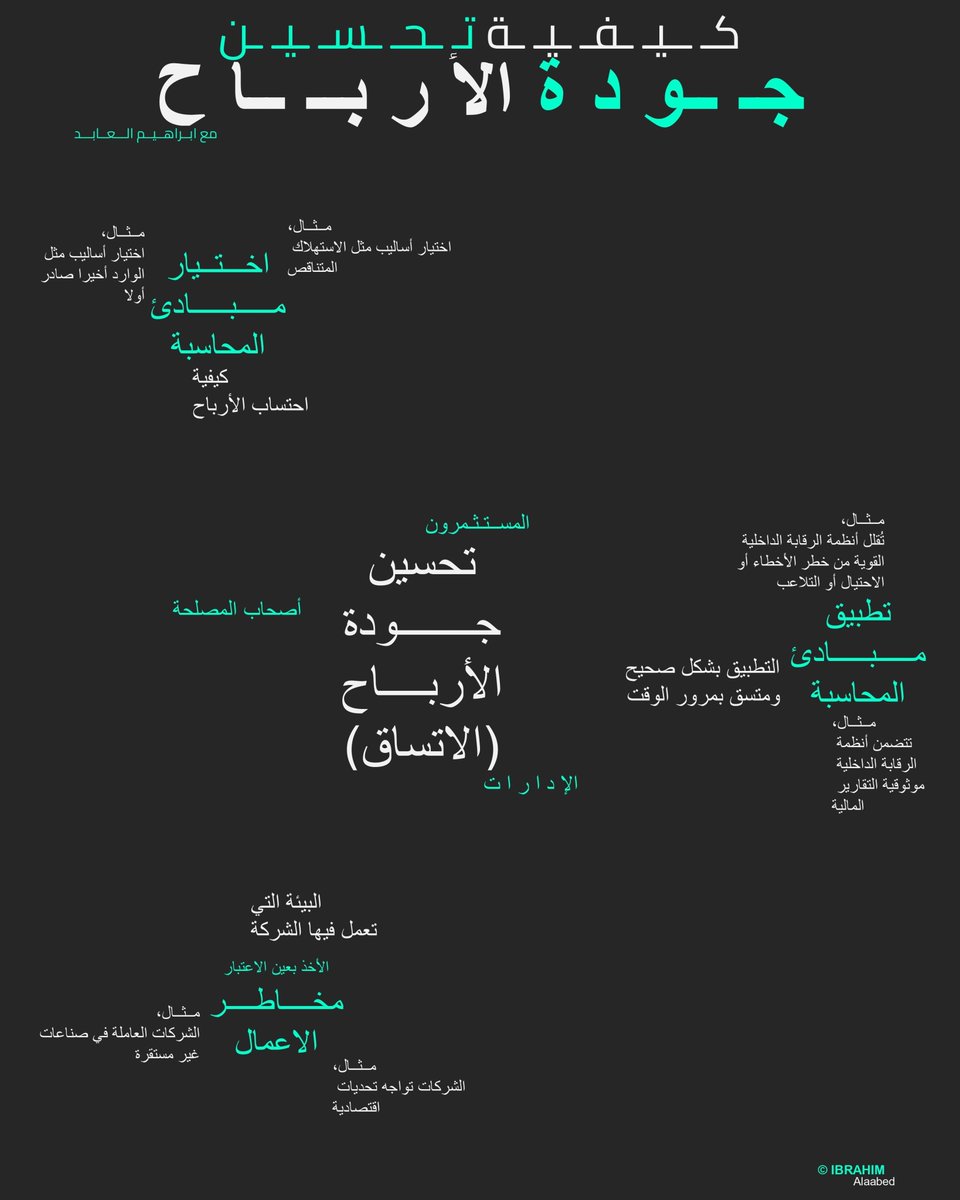 كـيـفـيـة تـحـسـيـن
جـودة الأربـاح
مع ابـراهـيـم الـعـابـد
مـثـال،
اختيار أساليب مثل الاستهلاك
المتناقص
مـثـال،
اختيار أساليب مثل
الوارد أخيرا صادر
أولا
اخـتـيار
مـبـادئ
المحاسبة
كيفية
احتساب الأرباح
المسـتـثـمرون
تحسين
جـودة
الأربـاح
(الاتساق)
أصحاب المصلحة
الإدارات
مـثـال،
تُقلل أنظمة الرقابة الداخلية
القوية من خطر الأخطاء أو
الاحتيال أو التلاعب
تطبيق
مـبـادئ
المحاسبة
التطبيق بشكل صحيح
ومتسق بمرور الوقت
مـثـال،
تتضمن أنظمة
الرقابة الداخلية
موثوقية التقارير
المالية
البيئة التي
تعمل فيها الشركة
الأخذ بعين الاعتبار
مخـاطـر
الاعمال
مـثـال،
الشركات العاملة في صناعات
غير مستقرة
مـثـال،
الشركات تواجه تحديات
اقتصادية
© IBRAHIM
Alaabed